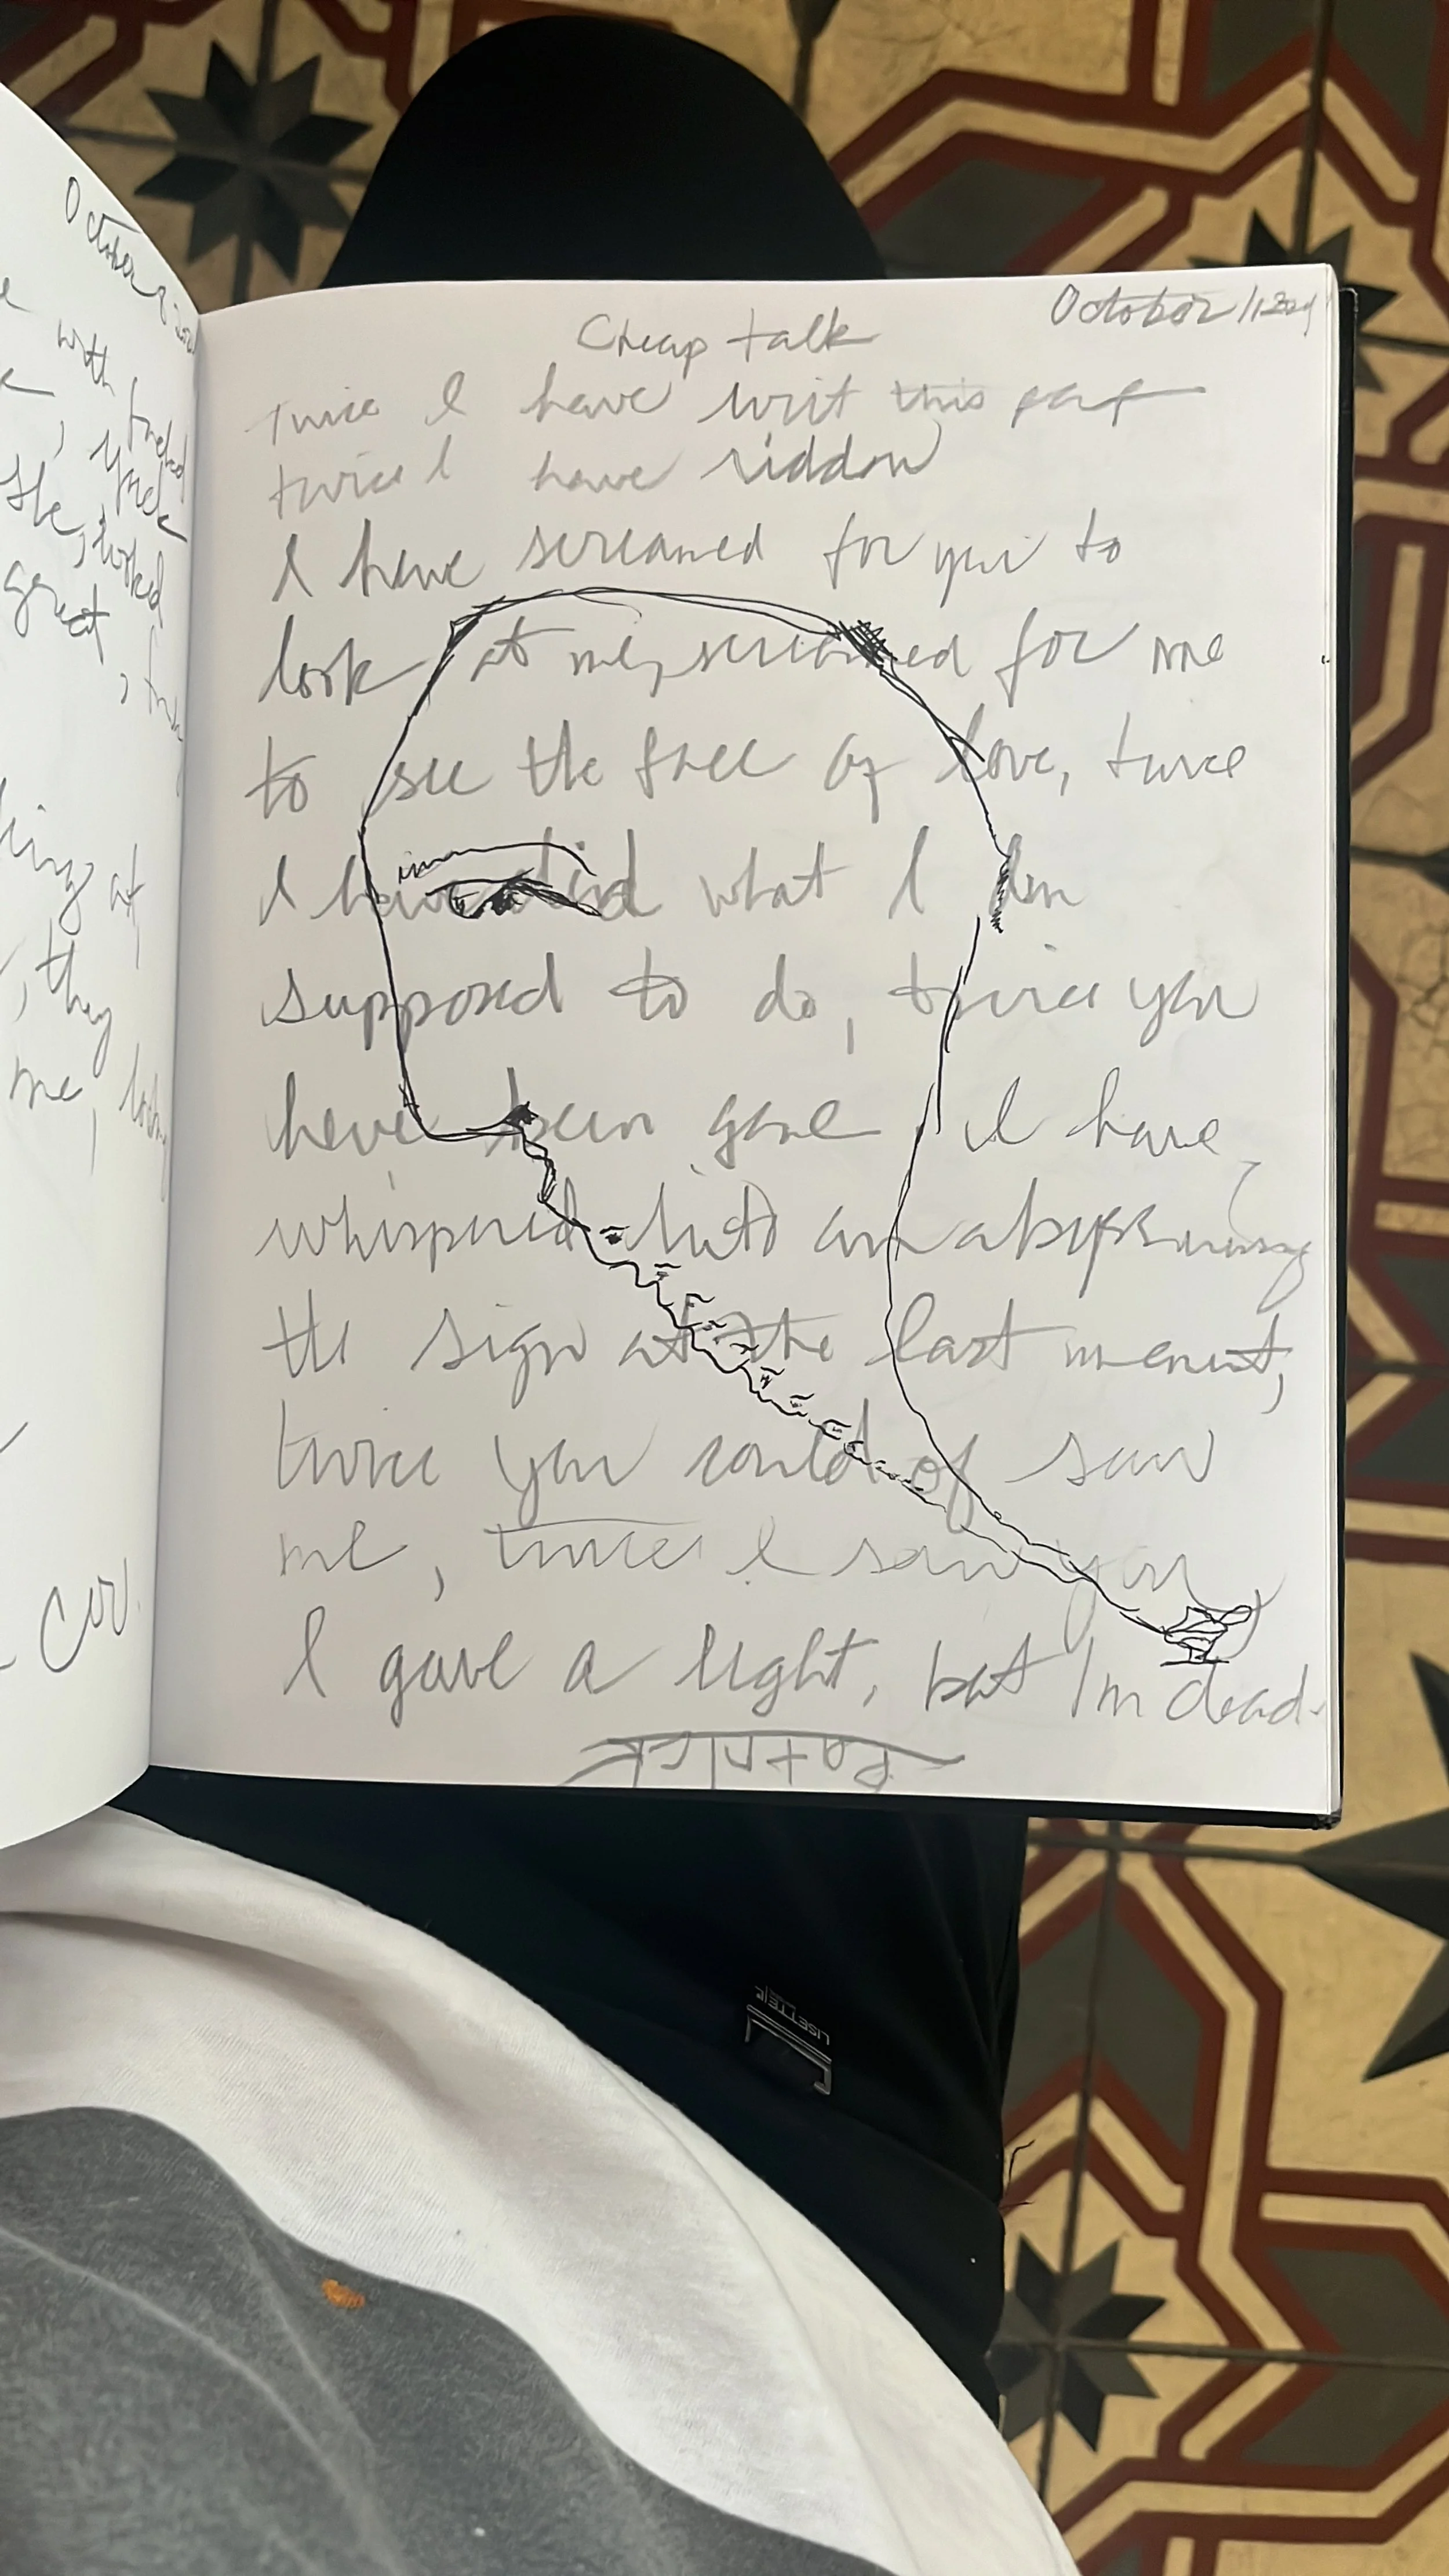 October 8
with
yuck
she, looked
great,
at
, they
me,
Cor.
October 11 2024
Cheap talk
Twice I have writ this
twice I have ridden
I have screamed for you to
look at me, screamed for me
to see the face of love, twice
I have did what I am
supposed to do, twice you
have been gone, I have
whispered into an abyss
the sign at the last moment,
twice you could of saw
me, twice I saw you,
I gave a light, but Im dead.
Patrick
LISETTE